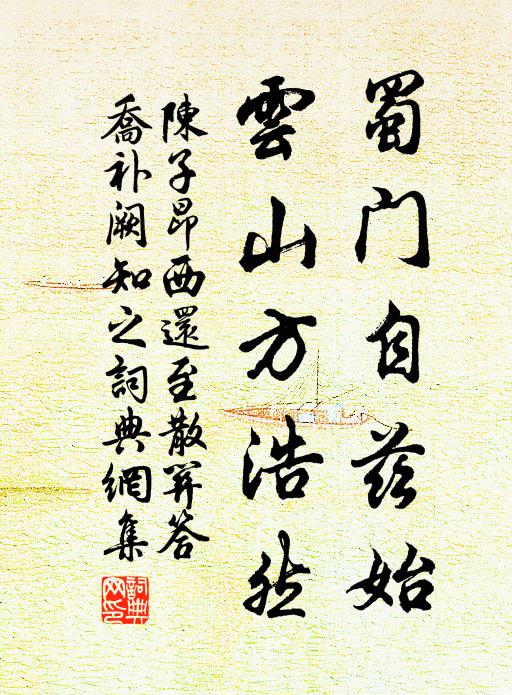 蜀门自茲始
雲山方浩然
陳子昂西還至散關答
喬补阙知之詞典網集
詞典
网印